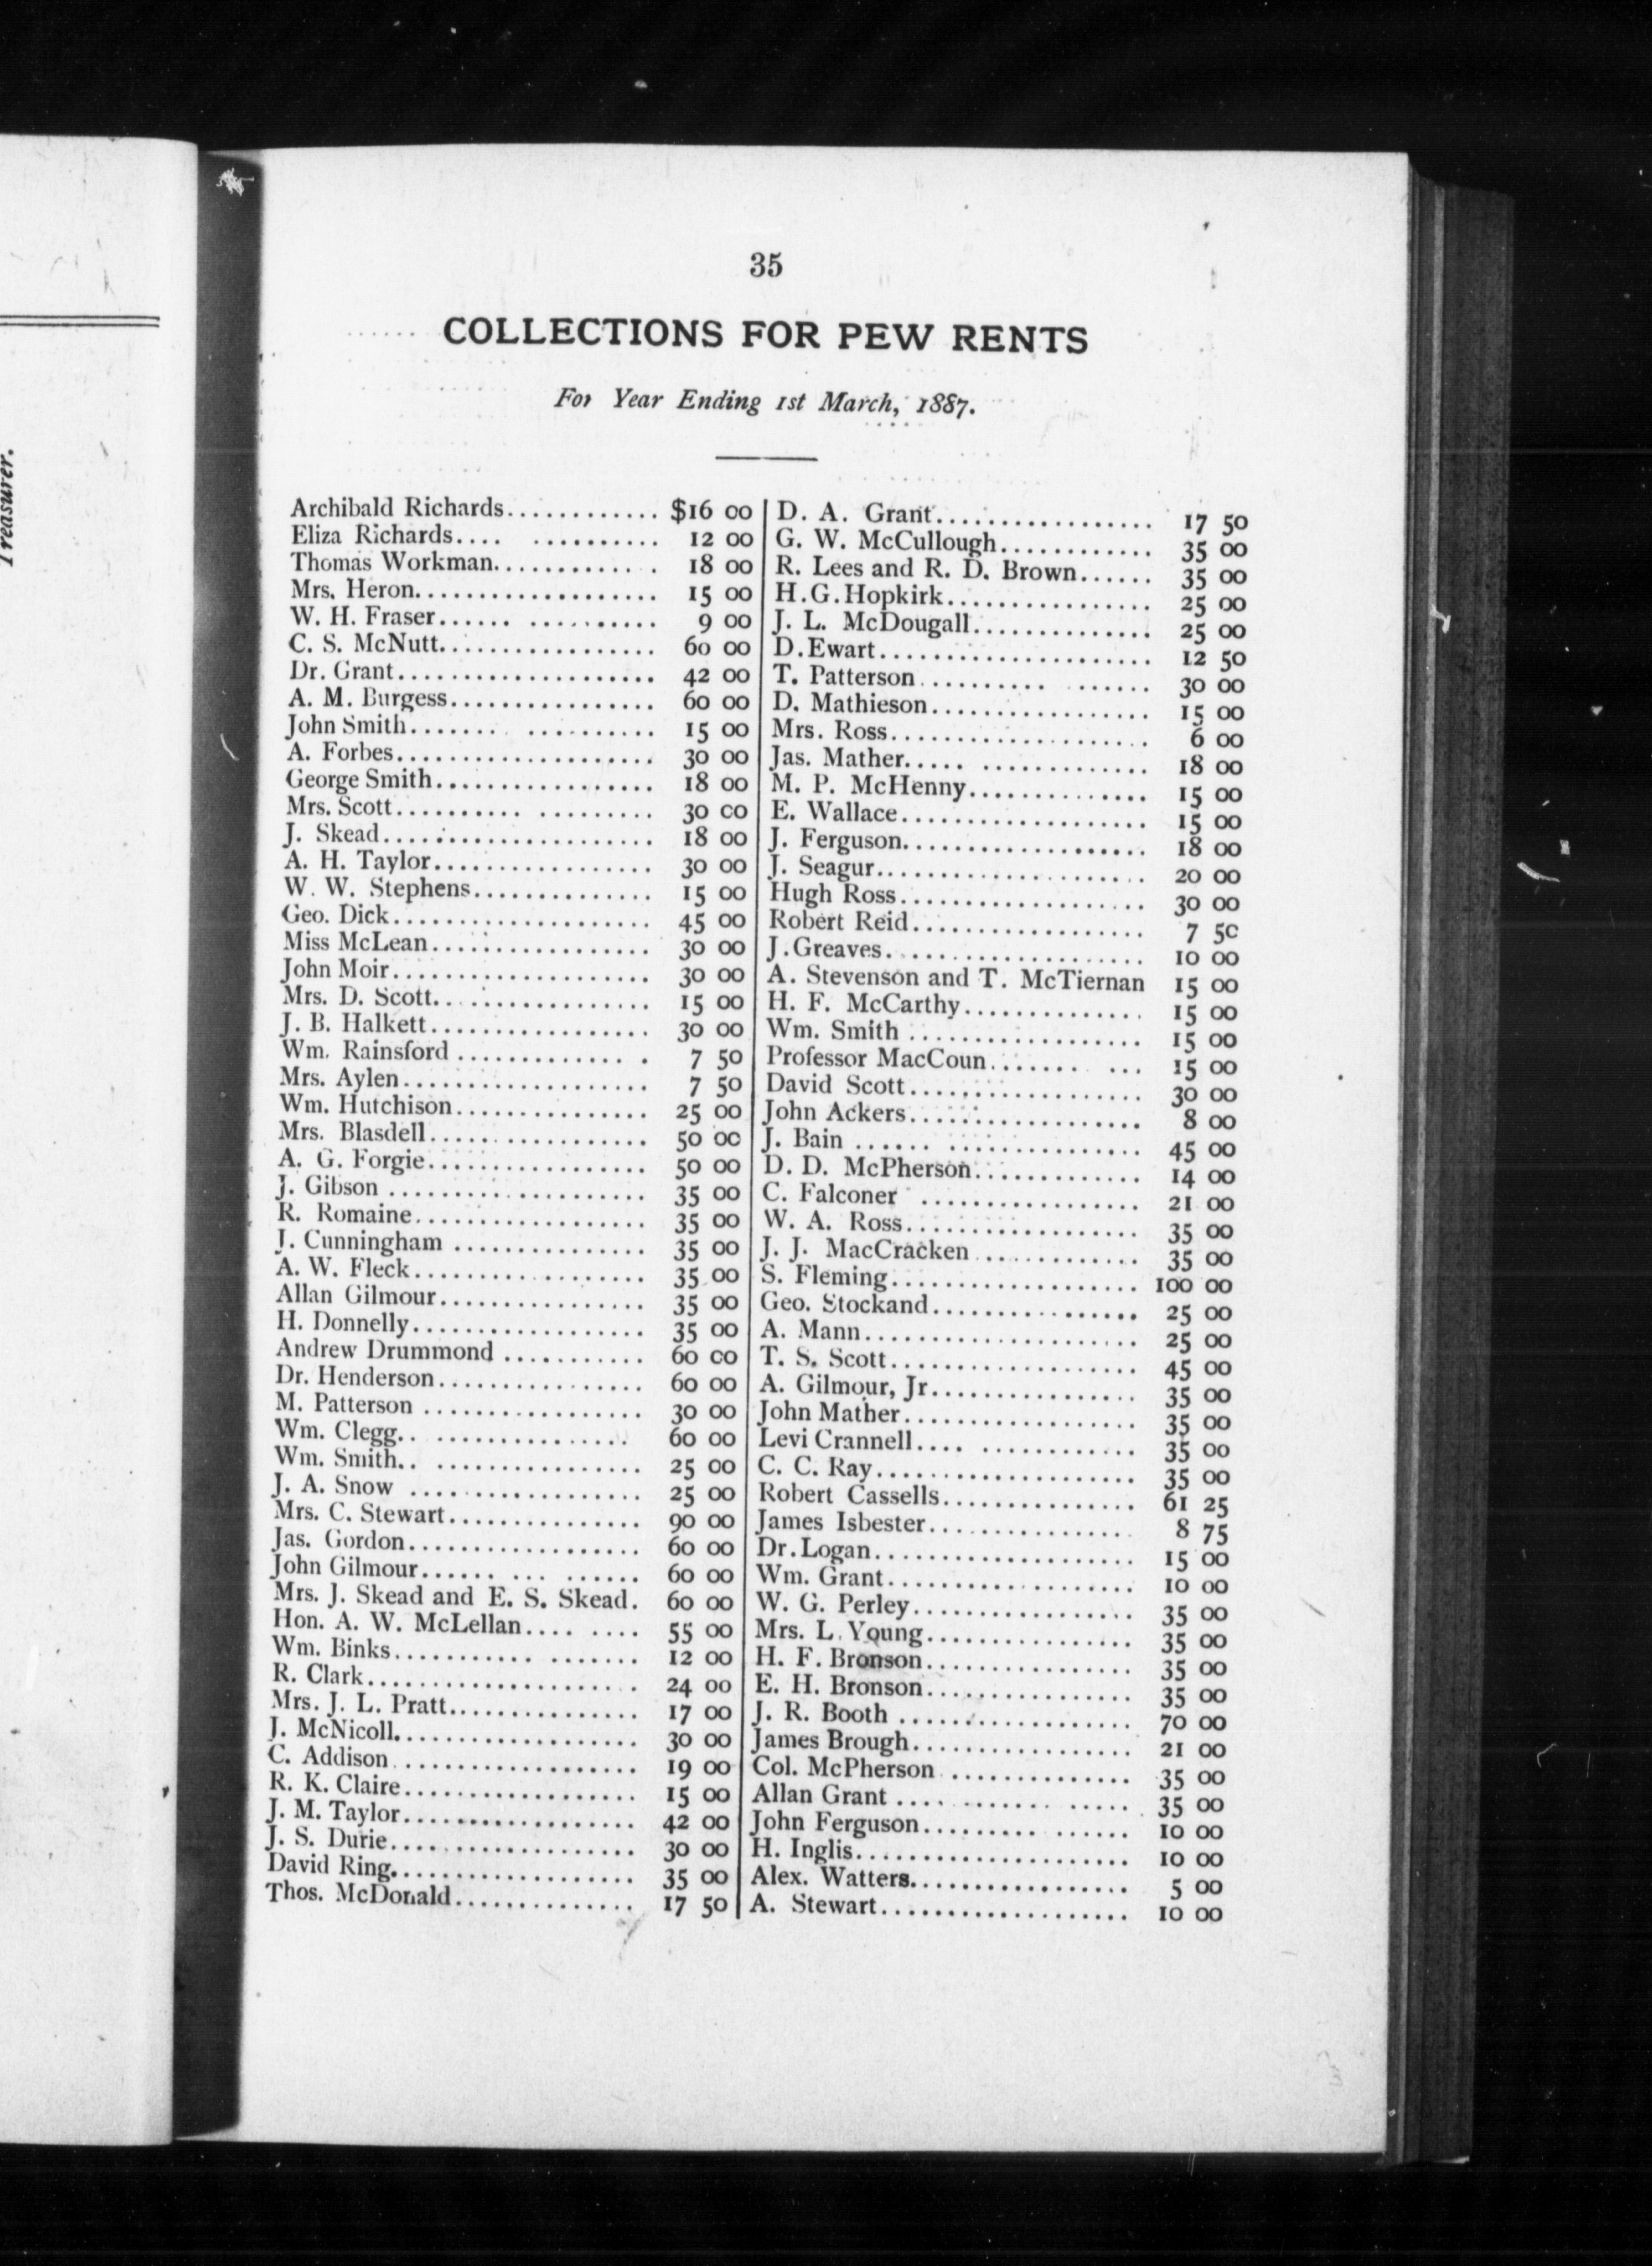 Treasurer.
35
COLLECTIONS FOR PEW RENTS
For Year Ending 1st March, 1887.
Archibald Richards............ $16 00
Eliza Richards.... .......... 12 00
Thomas Workman............. 18 00
Mrs. Heron................... 15 00
W. H. Fraser...... .......... 9 00
C. S. McNutt................. 60 00
Dr. Grant.................... 42 00
A. M. Burgess................ 60 00
John Smith....... .......... 15 00
A. Forbes.................... 30 00
George Smith................. 18 00
Mrs. Scott.......... ......... 30 00
J. Skead..................... 18 00
A. H. Taylor................. 30 00
W. W. Stephens.............. 15 00
Geo. Dick.................... 45 00
Miss McLean................. 30 00
John Moir.................... 30 00
Mrs. D. Scott................ 15 00
J. B. Halkett................. 30 00
Wm. Rainsford .............. 7 50
Mrs. Aylen................... 7 50
Wm. Hutchison............... 25 00
Mrs. Blasdell................. 50 00
A. G. Forgie................. 50 00
J. Gibson .................... 35 00
R. Romaine.................. 35 00
J. Cunningham ............... 35 00
A. W. Fleck.................. 35 00
Allan Gilmour................ 35 00
H. Donnelly.................. 35 00
Andrew Drummond ........... 60 00
Dr. Henderson................ 60 00
M. Patterson ................. 30 00
Wm. Clegg.. ............... 60 00
Wm. Smith.. ................ 25 00
J. A. Snow .................. 25 00
Mrs. C. Stewart............... 90 00
Jas. Gordon.................. 60 00
John Gilmour...... ... ...... 60 00
Mrs. J. Skead and E. S. Skead. 60 00
Hon. A. W. McLellan.... .... 55 00
Wm. Binks........... ....... 12 00
R. Clark..................... 24 00
Mrs. J. L. Pratt............... 17 00
J. McNicoll................... 30 00
C. Addison................... 19 00
R. K. Claire.................. 15 00
J. M. Taylor.................. 42 00
J. S. Durie................... 30 00
David Ring................... 35 00
Thos. McDonald.............. 17 50
D. A. Grant................. 17 50
G. W. McCullough............ 35 00
R. Lees and R. D. Brown...... 35 00
H.G.Hopkirk................ 25 00
J. L. McDougall.............. 25 00
D.Ewart..................... 12 50
T. Patterson.......... ...... 30 00
D. Mathieson................. 15 00
Mrs. Ross.................... 6 00
Jas. Mather..... ............. 18 00
M. P. McHenny.............. 15 00
E. Wallace................... 15 00
J. Ferguson................... 18 00
J. Seagur..................... 20 00
Hugh Ross................... 30 00
Robert Reid.................. 7 50
J.Greaves.................... 10 00
A. Stevenson and T. McTiernan 15 00
H. F. McCarthy.............. 15 00
Wm. Smith .................. 15 00
Professor MacCoun....... ... 15 00
David Scott.................. 30 00
John Ackers.................. 8 00
J. Bain ...... .............. 45 00
D. D. McPherson............. 14 00
C. Falconer ................. 21 00
W. A. Ross.................. 35 00
J. J. MacCracken ............ 35 00
S. Fleming................... 100 00
Geo. Stockand................ 25 00
A. Mann..................... 25 00
T. S. Scott................... 45 00
A. Gilmour, Jr................ 35 00
John Mather.................. 35 00
Levi Crannell.... ............ 35 00
C. C. Ray.................... 35 00
Robert Cassells............... 61 25
James Isbester................ 8 75
Dr.Logan.................... 15 00
Wm. Grant................... 10 00
W. G. Perley................. 35 00
Mrs. L. Young................ 35 00
H. F. Bronson................ 35 00
E. H. Bronson................ 35 00
J. R. Booth .................. 70 00
James Brough................. 21 00
Col. McPherson .............. 35 00
Allan Grant .... ....... ..... 35 00
John Ferguson......... ...... 10 00
H. Inglis..................... 10 00
Alex. Watters................. 5 00
A. Stewart................... 10 00